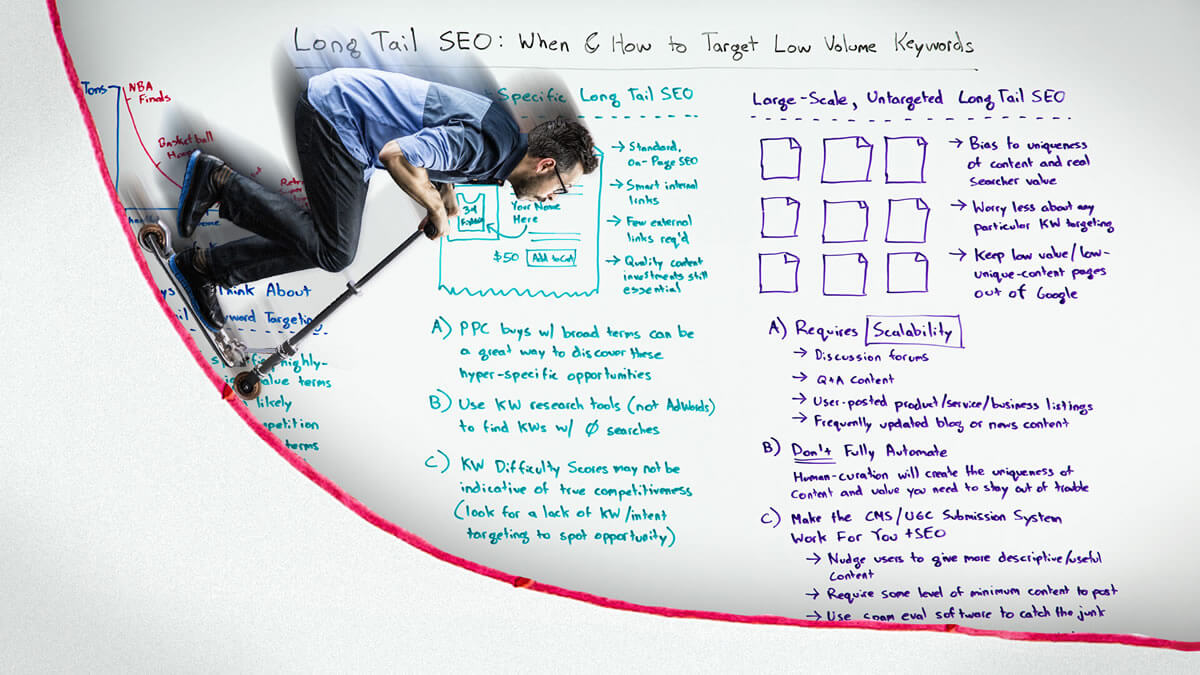 Long Tail SEO: When & How to Target Low Volume Keywords
Tons
NBA
Finals
Basketball
Think About
Keyword Targeting
highly-
value terms
likely
terms
Specific Long Tail SEO
→ Standard,
On-Page SEO
→ Smart internal
links
→ Few external
links req'd
→ Quality content
investments still
essential
Your Name
Here
$50
Add to Cart
A) PPC buys w/ broad terms can be
a great way to discover these
hyper-specific opportunities
B) Use KW research tools (not AdWords)
to find KWs w/ Ø searches
C) KW Difficulty Scores may not be
indicative of true competitiveness
(look for a lack of KW/intent
targeting to spot opportunity)
Large-Scale, Untargeted Long Tail SEO
→ Bias to uniqueness
of content and real
searcher value
→ Worry less about any
particular KW targeting
→ Keep low value/low-
unique-content pages
out of Google
A) Requires Scalability
→ Discussion forums
→ Q+A Content
→ User-posted product/service/business listings
→ Frequently updated blog or news content
B) Don't Fully Automate
Human-curation will create the uniqueness of
content and value you need to stay out of trouble
C) Make the CMS/UGC Submission System
Work For You + SEO
→ Nudge users to give more descriptive/useful
content
→ Require some level of minimum content to post
→ Use spam eval software to catch the junk